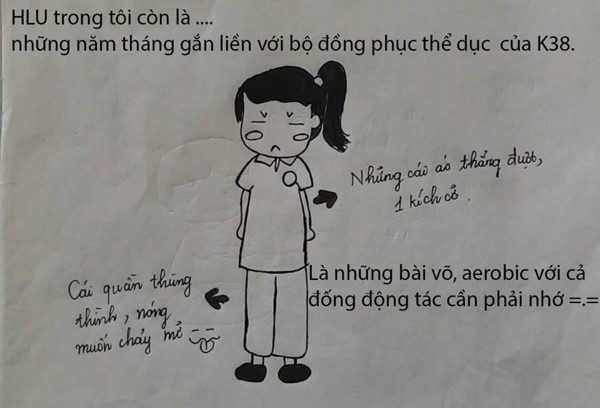 HLU trong tôi còn là ....
những năm tháng gắn liền với bộ đồng phục thể dục của K38.
Những cái áo thẳng đuột,
1 kích cỡ.
Là những bài võ, aerobic với cả
đống động tác cần phải nhớ =.=
Cái quần thùng
thình, nóng
muốn chảy mỡ